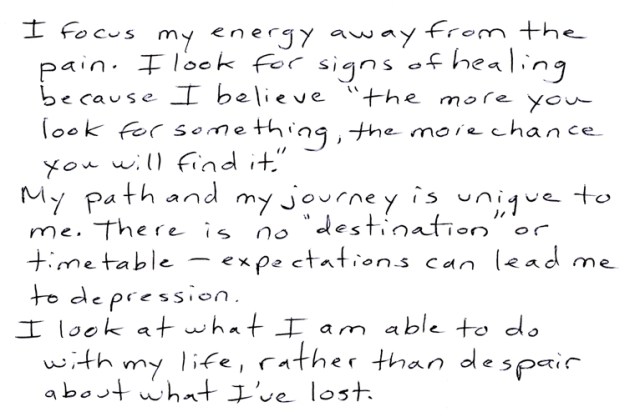 I focus my energy away from the
pain. I look for signs of healing
because I believe "the more you
look for something, the more chance
you will find it."
My path and my journey is unique to
me. There is no "destination" or
timetable – expectations can lead me
to depression.
I look at what I am able to do
with my life, rather than despair
about what I've lost.